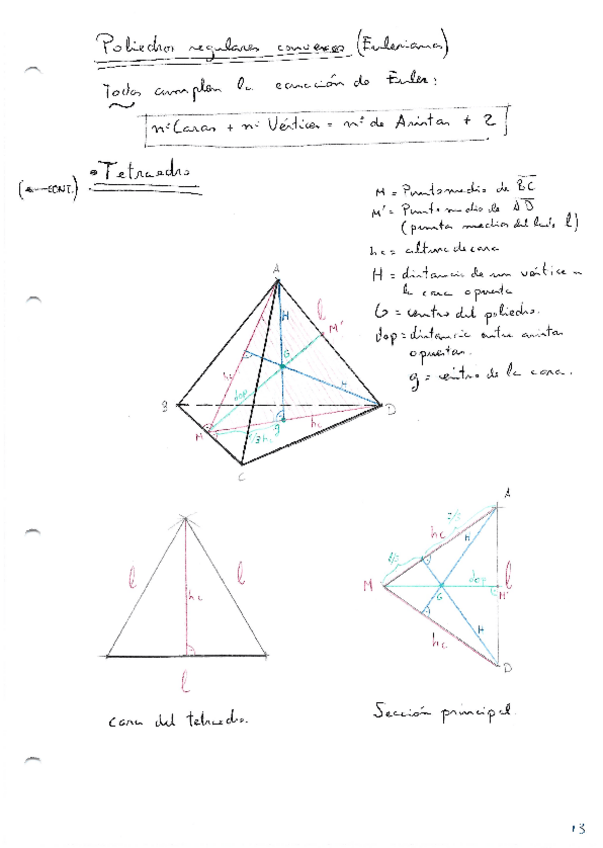 Poliedros regulares convexos (Eulerianos)
Todos cumplen la ecuación de Euler:
nº Caras + nº Vértices = nº de Aristas + 2
• Tetraedro
CONT.)
M = Punto medio de BC
M' = Punto medio de AD
(puntos medios del lado l)
hc = altura de cara
H = distancia de un vértice a
la cara opuesta
G = centro del poliedro.
dop = distancia entre aristas
opuestas.
g = centro de la cara.
A
H
l
M'
G
hc
dop
H
B
D
M
g
hc
1/3 hc
C
A
2/3
hc
H
1/3
l
l
hc
M
dop
l
G
M'
hc
H
D
l
Cara del tetraedro.
Sección principal.
13